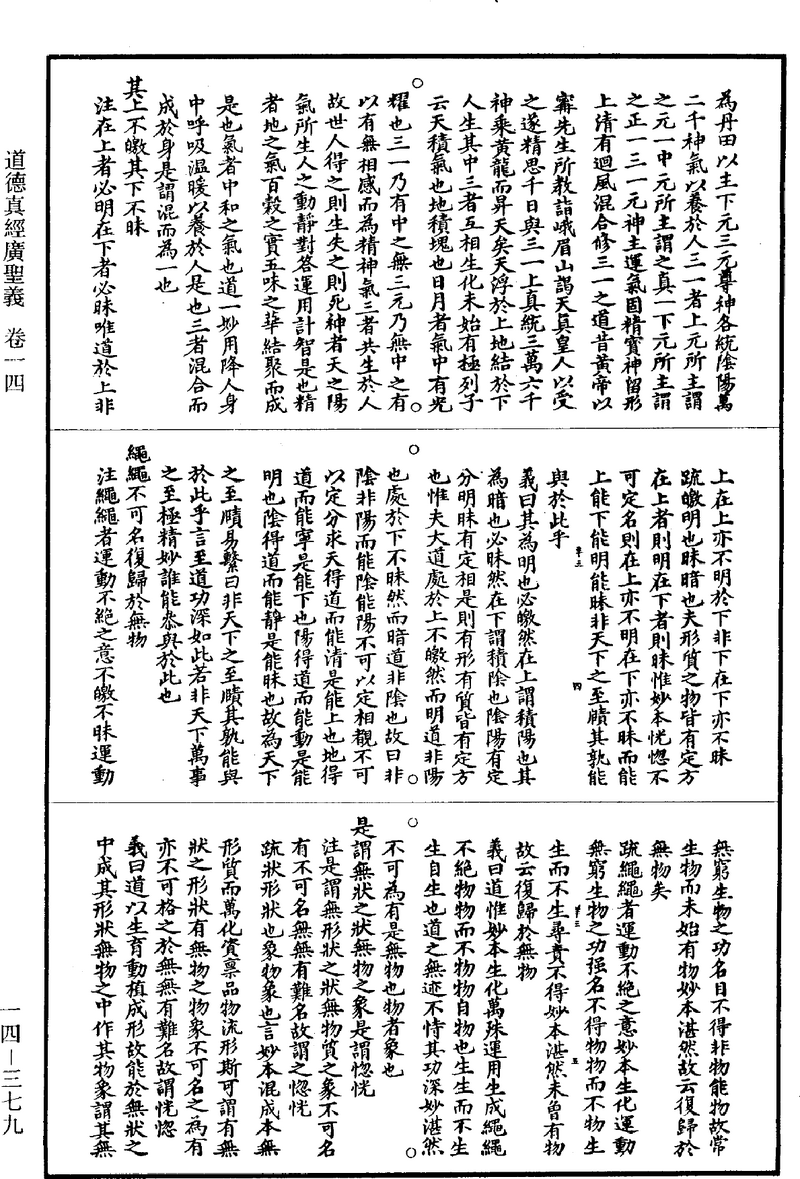 道德真經廣聖義　卷一四
一四—三七九
為丹田以主下元三元尊神各統陰陽萬
二千神氣以養於人三一者上元所主謂
之元一中元所主謂之真一下元所主謂
之正一三一元神主運氣固精寶神留形
上清有迴風混合修三一之道昔黃帝以
甯先生所教詣峨眉山謁天真皇人以受
之遂精思千日與三一上真統三萬六千
神乘黃龍而昇天矣天浮於上地結於下
人生其中三者互相生化未始有極列子
云天積氣也地積塊也日月者氣中有光
耀也三一乃有中之無三元乃無中之有
以有無相感而為精神氣三者共生於人
故世人得之則生失之則死神者天之陽
氣所生人之動靜對答運用計智是也精
者地之氣百穀之實五味之華結聚而成
是也氣者中和之氣也道一妙用降人身
中呼吸溫暖以養於人是也三者混合而
成於身是謂混而為一也
其上不皦其下不昧
注在上者必明在下者必昧唯道於上非
上在上亦不明於下非下在下亦不昧
疏皦明也昧暗也夫形質之物皆有定方
在上者則明在下者則昧惟妙本恍惚不
可定名則在上亦不明在下亦不昧而能
上能下能明能昧非天下之至賾其孰能
與於此乎
義曰其為明也必皦然在上謂積陽也其
為暗也必昧然在下謂積陰也陰陽有定
分明昧有定相是則有形有質皆有定方
也惟夫大道處於上不皦然而明道非陽
也處於下不昧然而暗道非陰也故曰非
陰非陽而能陰能陽不可以定相覩不可
以定分求天得道而能清是能上也地得
道而能寧是能下也陽得道而能動是能
明也陰得道而能靜是能昧也故為天下
之至賾易繫曰非天下之至賾其孰能與
於此乎言至道功深如此若非天下萬事
之至極精妙誰能叅與於此也
繩繩不可名復歸於無物
注繩繩者運動不絕之意不皦不昧運動
無窮生物之功名目不得非物能物故常
生物而未始有物妙本湛然故云復歸於
無物矣
疏繩繩者運動不絕之意妙本生化運動
無窮生物之功强名不得物物而不物生
生而不生尋責不得妙本湛然未曾有物
故云復歸於無物
義曰道惟妙本生化萬殊運用生成繩繩
不絕物物而不物物自物也生生而不生
生自生也道之無迹不恃其功深妙湛然
不可為有是無物也物者象也
是謂無狀之狀無物之象是謂惚恍
注是謂無形狀之狀無物質之象不可名
有不可名無無有難名故謂之惚恍
疏狀形狀也象物象也言妙本混成本無
形質而萬化資禀品物流形斯可謂有無
狀之形狀有無物之物象不可名之為有
亦不可格之於無無有難名故謂恍惚
義曰道以生育動植成形故能於無狀之
中成其形狀無物之中作其物象謂其無